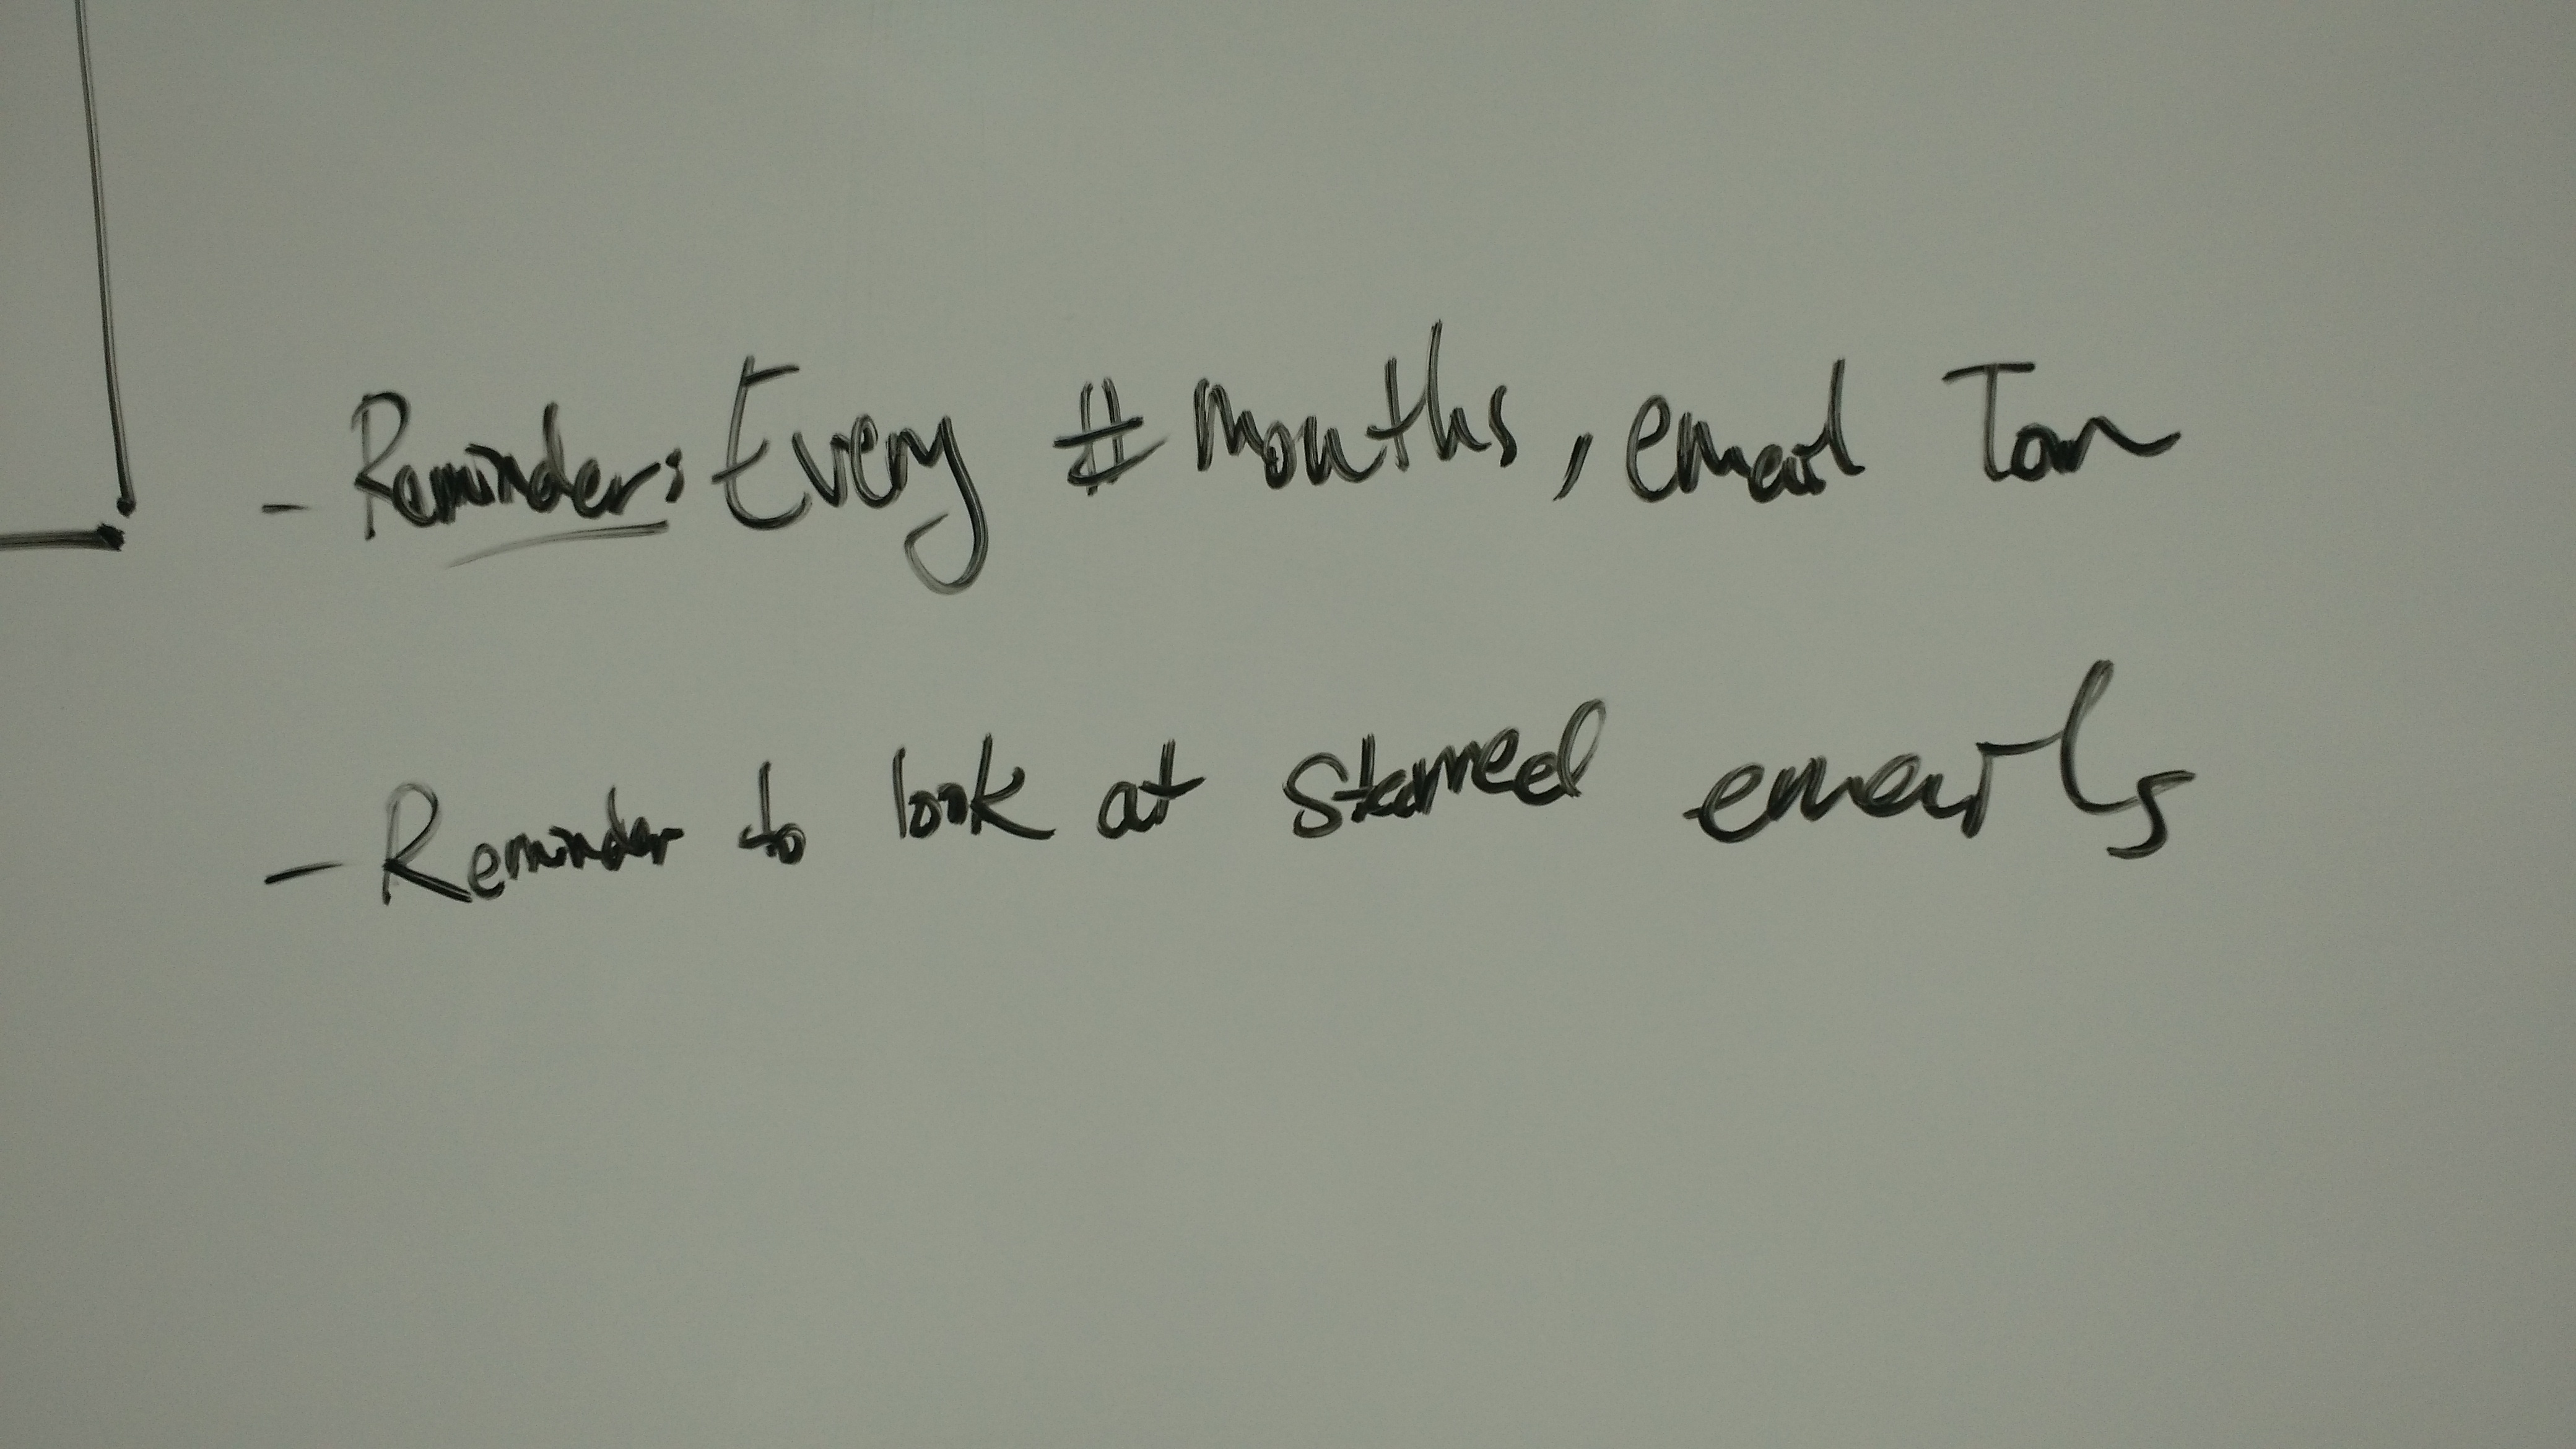 - Reminder: Every # months, email Tom
- Reminder to look at starred emails